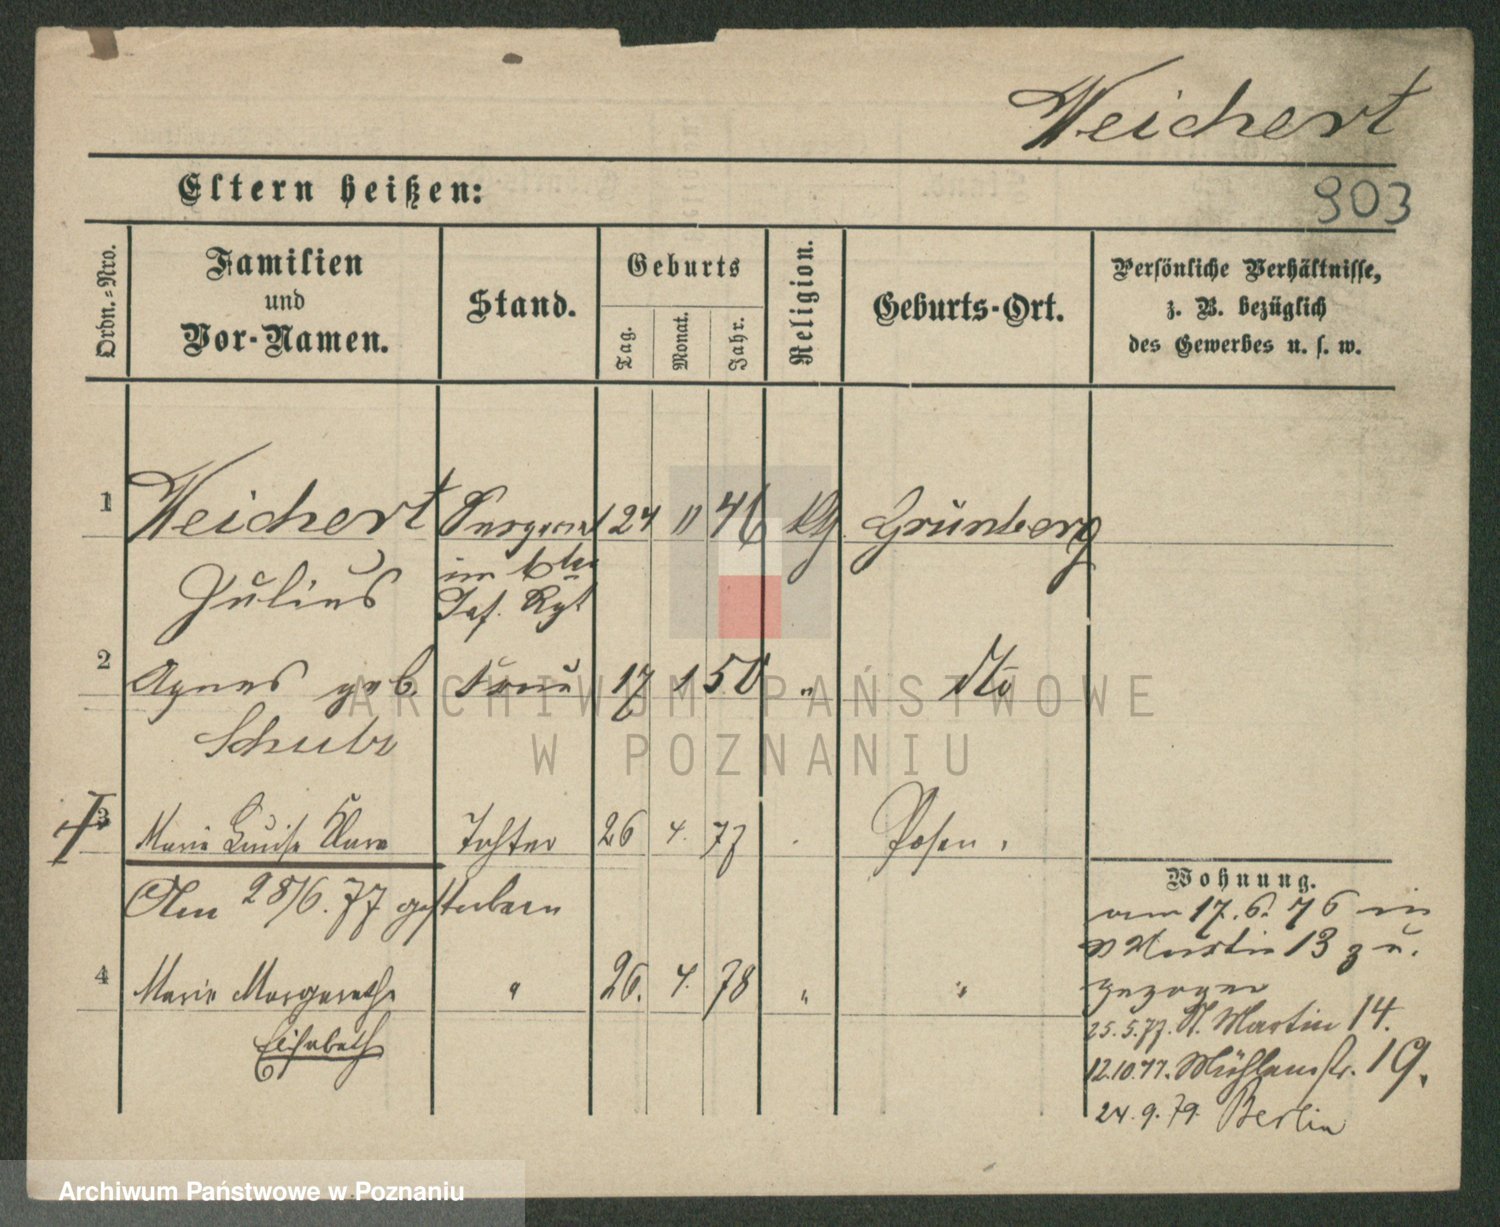 Weichert
Eltern heißen:
903
Ordn.=Nro.
Familien
und
Vor-Namen.
Stand.
Geburts
Tag.
Monat.
Jahr.
Religion.
Geburts-Ort.
Persönliche Verhältnisse,
z. B. bezüglich
des Gewerbes u. s. w.
1 Weichert Sergeant 24 11 46 Grünberg
Julius im 6ten
Inf. Rgt
2 Agnes geb. Frau 17 1 50 " dto
ARCHIWUM PAŃSTWOWE
W POZNANIU
3 Marie Luise Clara Tochter 26 4. 77 Posen.
Am 28/6. 77 gestorben
Wohnung.
am 17. 6. 76 in
St Martin 13 zu.
gezogen
4 Marie Margarethe " 26. 4. 78 " "
Elisabeth
25.5.77. St. Martin 14.
12.10.77. Mühlenstr. 19.
24.9.79. Berlin
Archiwum Państwowe w Poznaniu